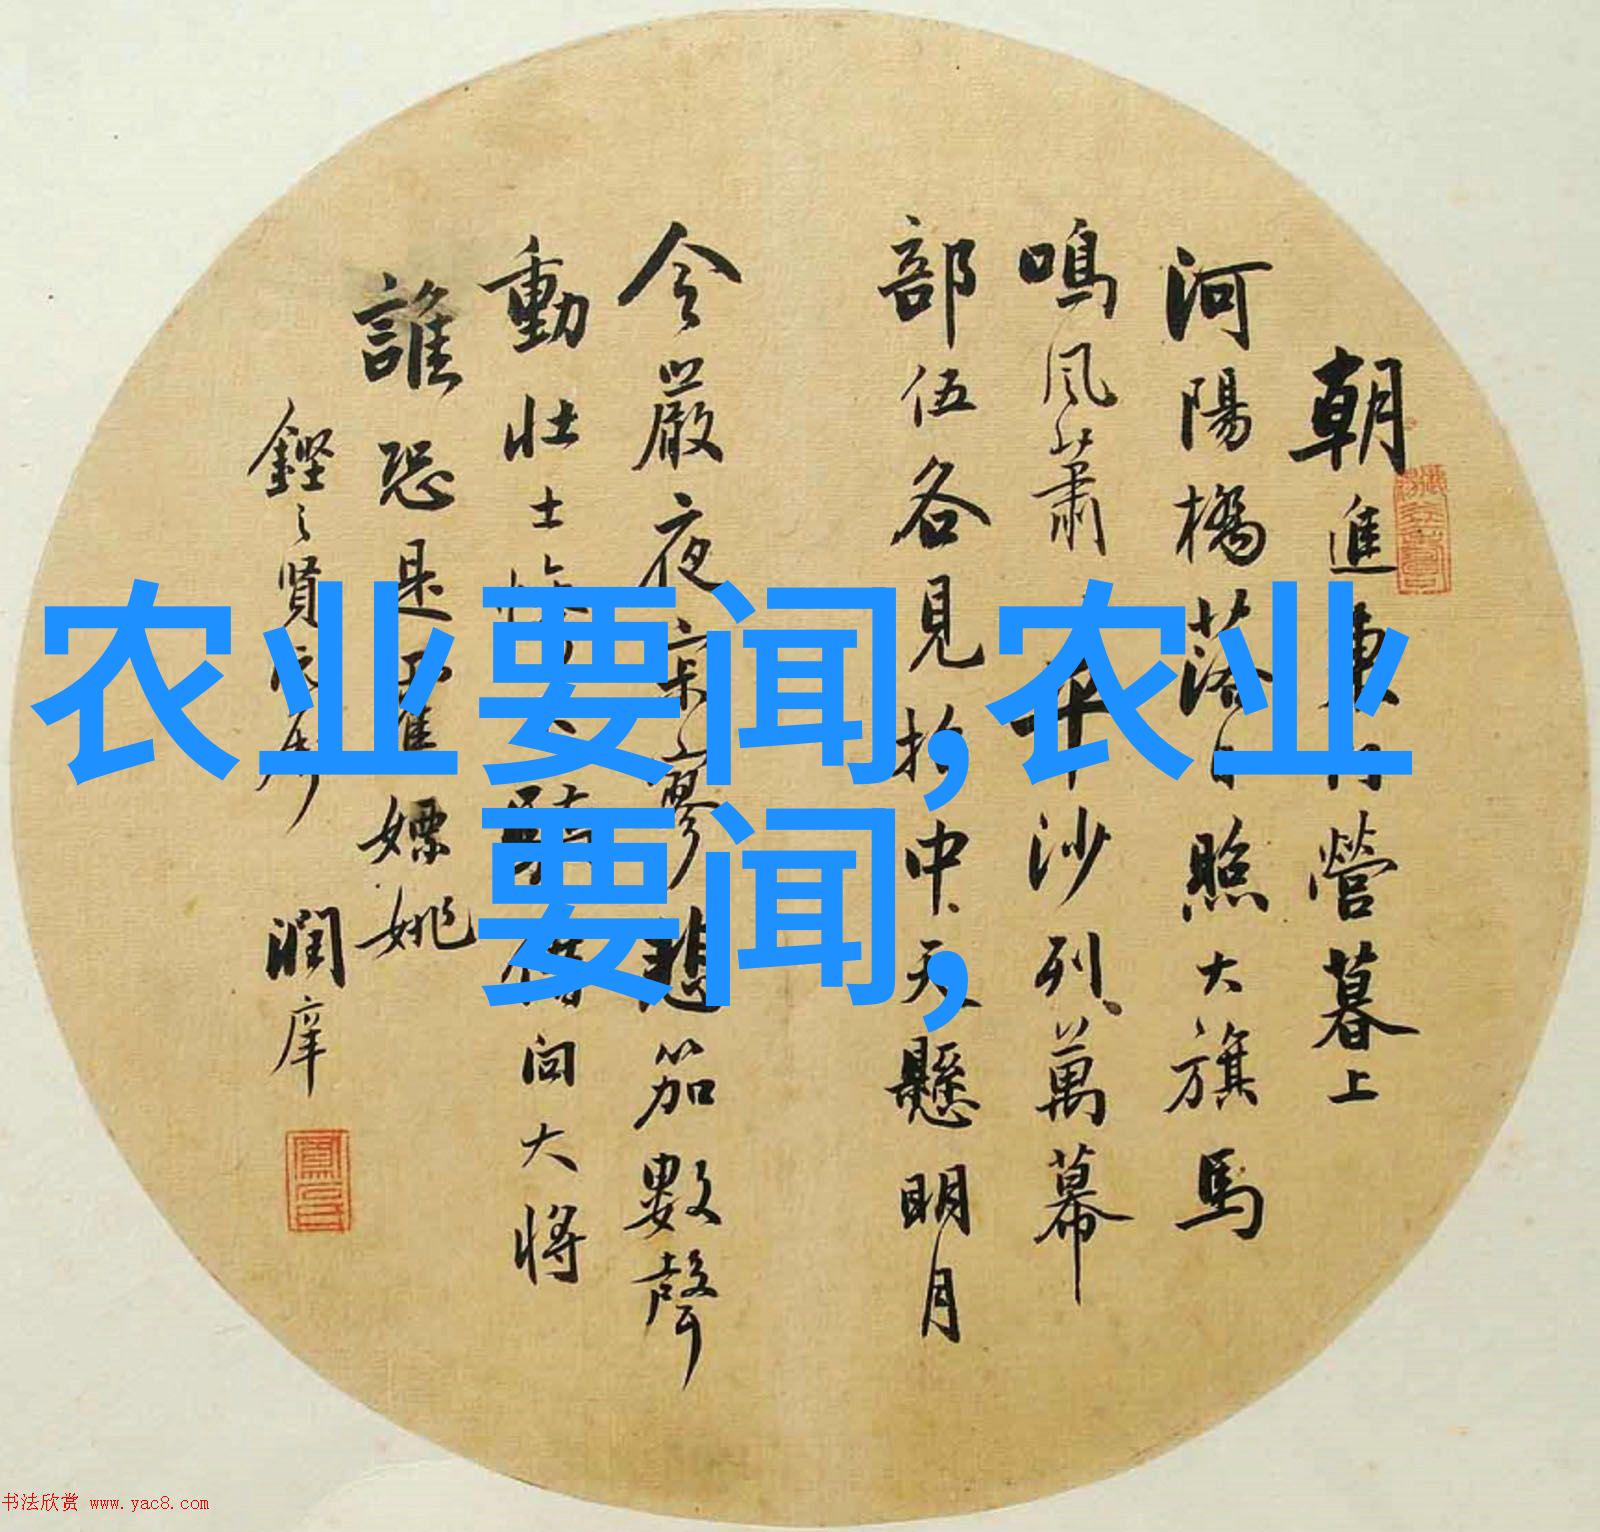 农业要闻,农业
要闻,
朝進東門營暮上
河陽橋落日照大旗馬
鳴風蕭平沙列萬幕
部伍各見招中天懸明月
令嚴夜寂寥悲笳數聲
動壯士慘驕借問大將
誰恐是霍嫖姚
賢
潤庠
书法欣赏 www.yac8.com